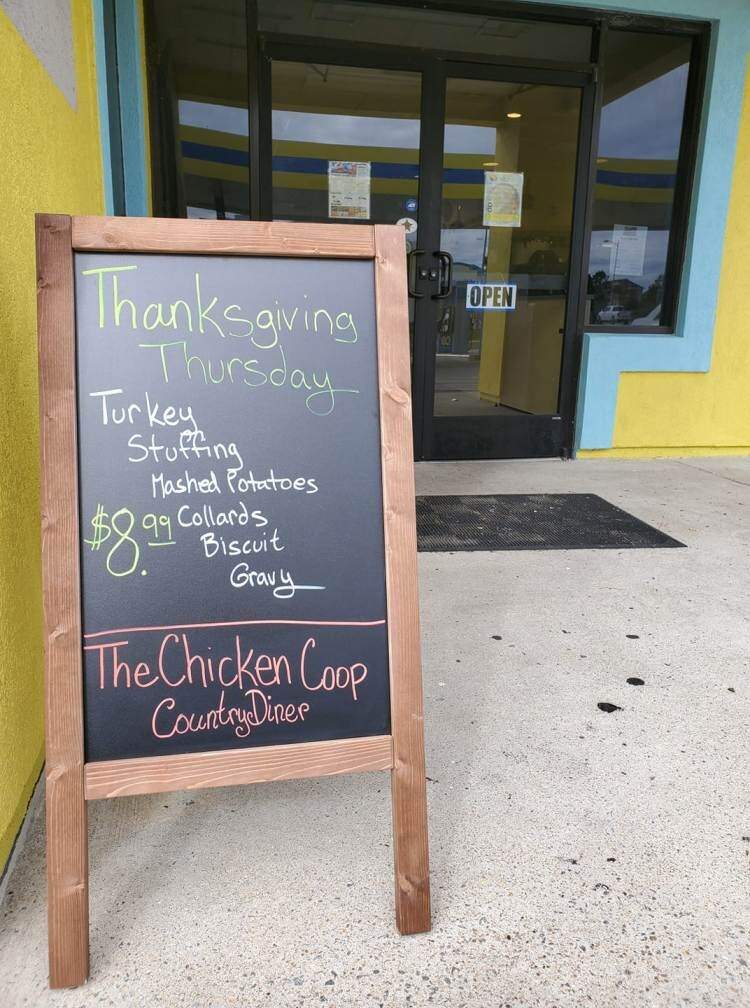 Thanksgiving
Thursday
Turkey
Stuffing
Mashed Potatoes
$8.99 Collards
Biscuit
Gravy
The Chicken Coop
Country Diner
OPEN